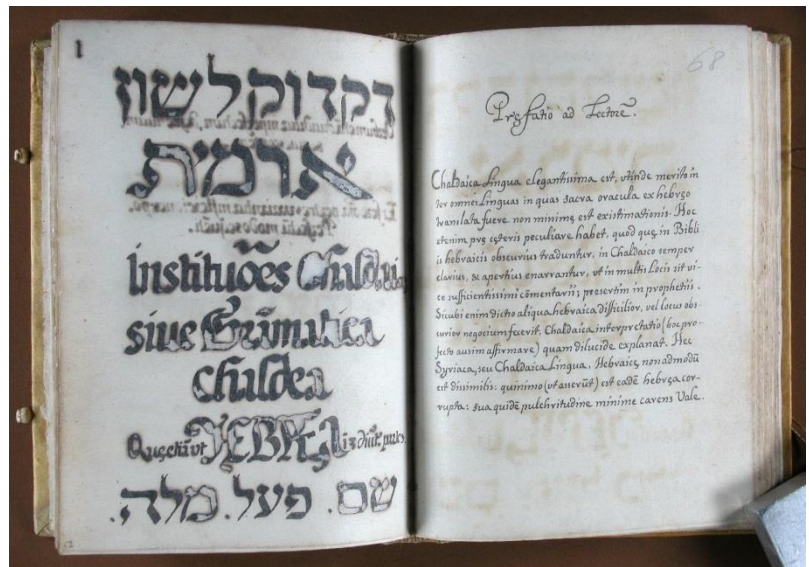 1
דקדוק לשון
ארמית
Institutiões Chaldaicę
siue Gram̃atica
chaldea
Quę etiã vt HEBRÇA
שם. פעל. מלה.
68
Pręfatio ad Lectorẽ.
Chaldaica Lingua elegantissima est, vtinde merito in
ter omnes Linguas in quas sacra oracula ex hebręo
translata fuere non minimę est existimationis. Hoc
etenim prę cęteris peculiare habet, quod quę in Bibli
is hebraicis obscurius traduntur, in Chaldaico semper
clarius, & apertius enarrantur, vt in multis Locis sit vi-
ce sufficientissimi cõmentarii; presertim in prophetis.
Sicubi enim dictio aliqua hebraica difficilior, vel locus obs-
curior negocium fecerit. Chaldaica interprętatio (hoc pro-
fecto ausim affirmare) quam dilucide explanat. Hęc
Syriaca, seu Chaldaica Lingua, Hebraicę non admodũ
est dissimilis: quinimo (vt asserũt) est eadẽ hebręa cor-
rupta: sua quidẽ pulchritudine minime carens Vale.